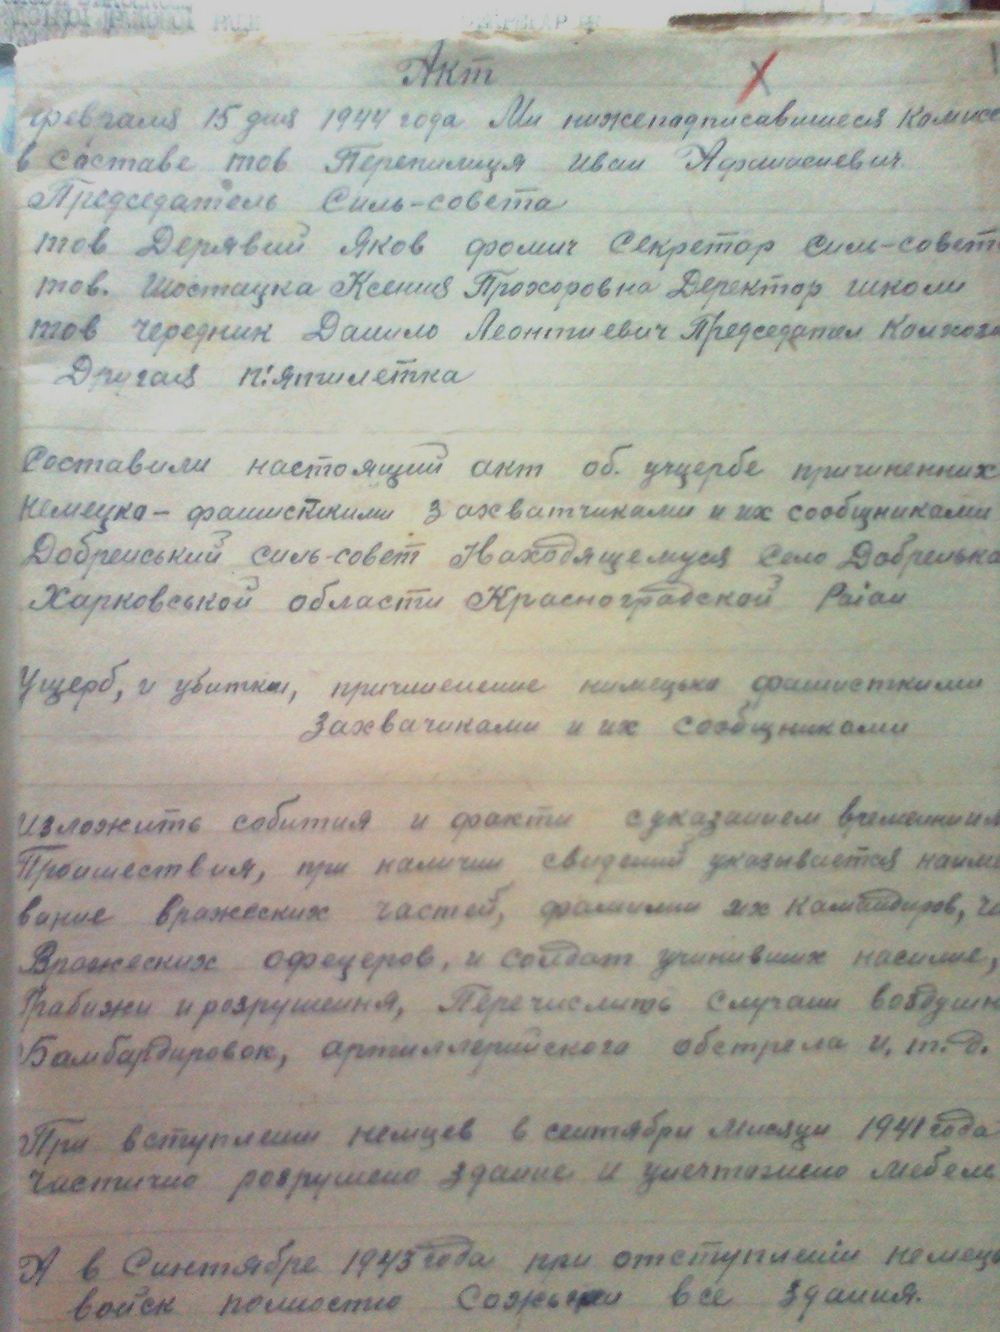 Акт
февраля 15 дня 1944 года Ми нижеподписавшиеся Комисс
в составе тов Перепилиця Иван Афанасиевич
Председатель Силь-совета
тов Дерявий Яков фомич Секретар силь-совет
тов. Шостацка Ксения Прохоровна Деректор школи
тов чередник Данило Леонтиевич Председател Колхоза
Другая п'ятилетка
Составили настоящий акт об. ущербе причиненних
немецко-фашисткими захватчиками и их сообщниками
Добренський силь-совет Находящемуся село Добренька
Харковськой области Красноградской Раіон
Ущерб, и убитки, причиненние нимецько фашисткими
Захвачиками и их сообщниками
изложить события и факти с указанием времении
Проишествия, при наличии сведений указывается наиме
вание вражеских частей, фамилии их командиров,
Вражеских офецеров, и солдат учинивших насилие,
Грабижи и розрушения, Перечислить случаии воздушн
Бамбардировок, артиллерийского обстрела и. т. д.
При вступлении немцев в сентябри мисяци 1941 года
частично розрушено здание и унечтожено мебель
А в Синтябре 1943 года при отступлении немець
войск полностю сожгли все здания.